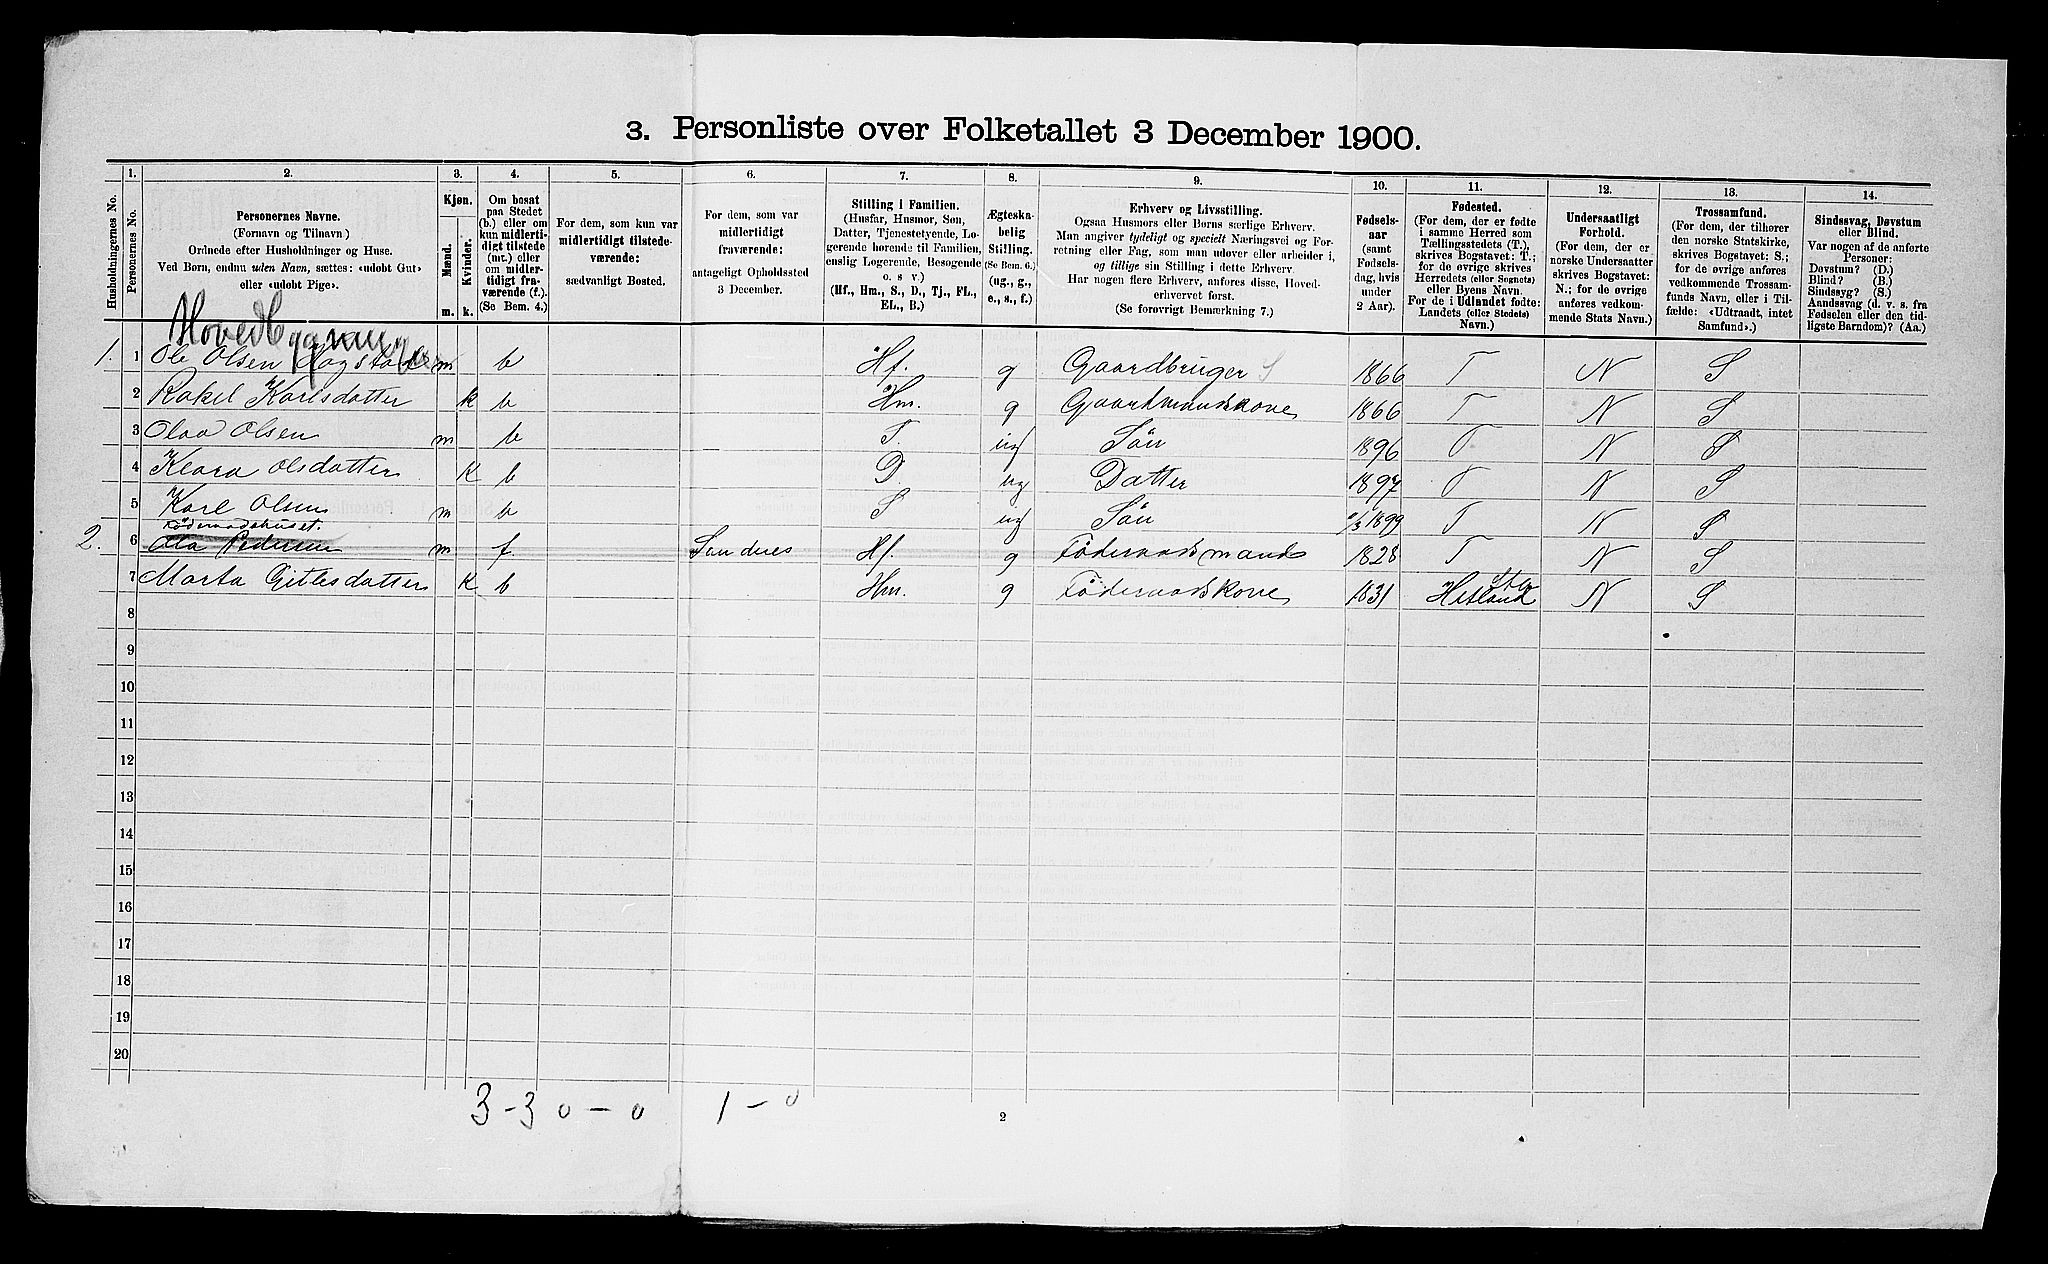 3. Personliste over Folketallet 3 December 1900.
Husholdningernes No.
1.
Personernes No.
2.
Personernes Navne.
(Fornavn og Tilnavn)
Ordnede efter Husholdninger og Huse.
Ved Børn, endnu uden Navn, sættes: «udobt Gut»
eller «udobt Pige».
3.
Kjøn.
Mænd.
Kvinder.
m. k.
4.
Om bosat
paa Stedet
(b.) eller om
kun midlerti-
digt tilstede
(mt.) eller
om midler-
tidigt fra-
værende (f.).
(Se Bem. 4.)
5.
For dem, som kun var
midlertidigt tilstede-
værende:
sædvanligt Bosted.
6.
For dem, som var
midlertidigt
fraværende:
antageligt Opholdssted
3 December.
7.
Stilling i Familien.
(Husfar, Husmor, Søn,
Datter, Tjenestetyende, Lo-
gerende hørende til Familien,
enslig Logerende, Besøgende
o. s v.)
(Hf., Hm., S., D., Tj., FL.,
EL., B.)
8.
Ægteska-
belig
Stilling.
(Se Bem. 6.)
(ug., g.,
e., s., f.)
9.
Erhverv og Livsstilling.
Ogsaa Husmors eller Børns særlige Erhverv.
Man angiver tydeligt og specielt Næringsvei og For-
retning eller Fag, som man udøver eller arbeider i,
og tillige sin Stilling i dette Erhverv.
Har nogen flere Erhverv, anføres disse, Hoved-
erhvervet først.
(Se forøvrigt Bemærkning 7.)
10.
Fødsels-
aar
(samt
Fødsels-
dag, hvis
under
2 Aar).
11.
Fødested.
(For dem, der er fødte
i samme Herred som
Tællingsstedets (T.),
skrives Bogstavet: T.;
for de øvrige skrives
Herredets (eller Sognets)
eller Byens Navn.
For de i Udlandet fødte:
Landets (eller Stedets)
Navn.)
12.
Undersaatligt
Forhold.
(For dem, der er
norske Undersaatter
skrives Bogstavet:
N.; for de øvrige
anføres vedkom-
mende Stats Navn.)
13.
Trossamfund.
(For dem, der tilhører
den norske Statskirke,
skrives Bogstavet: S.;
for de øvrige anføres
vedkommende Trossam-
funds Navn, eller i Til-
fælde: «Udtraadt, intet
Samfund».)
14.
Sindssvag, Døvstum
eller Blind.
Var nogen af de anførte
Personer:
Døvstum? (D.)
Blind? (B.)
Sindssyg? (S.)
Aandssvag (d. v. s. fra
Fødselen eller den tid-
ligste Barndom)? (Aa.)
1. 1 Ole Olsen m b Hf. g Gaardbruger S 1866 T N S
2 Rakel Karlsdatter k b Hm. g Gaardmandskone 1866 T N S
3 Olaa Olsen m b T. ug Sön 1896 T N S
4 Klara Olsdatter k b D. ug Datter 1897 T N S
5 Karl Olsen m b S ug Sön 1899 T N S
Föderaadshuset.
2. 6 Ola Pedersen m f Sandnes Hf. g Föderaadsmand 1828 T N S
7 Marta Gitlesdatter k b Hm. g Föderaadskone 1831 Hetland N S
8
9
10
11
12
13
14
15
16
17
18
19
20
3 - 3 0 - 0 1 - 0
2